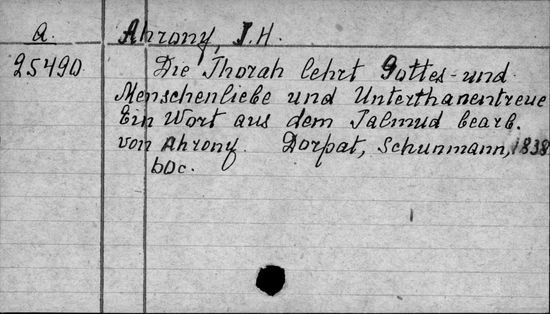 a. Ahrony, J.H.
25490 Die Thorah lehrt Gottes- und
Menschenliebe und Unterthanentreue
Ein Wort aus dem Talmud bearb.
von Ahrony. Dorpat, Schünmann, 1838
bDc.